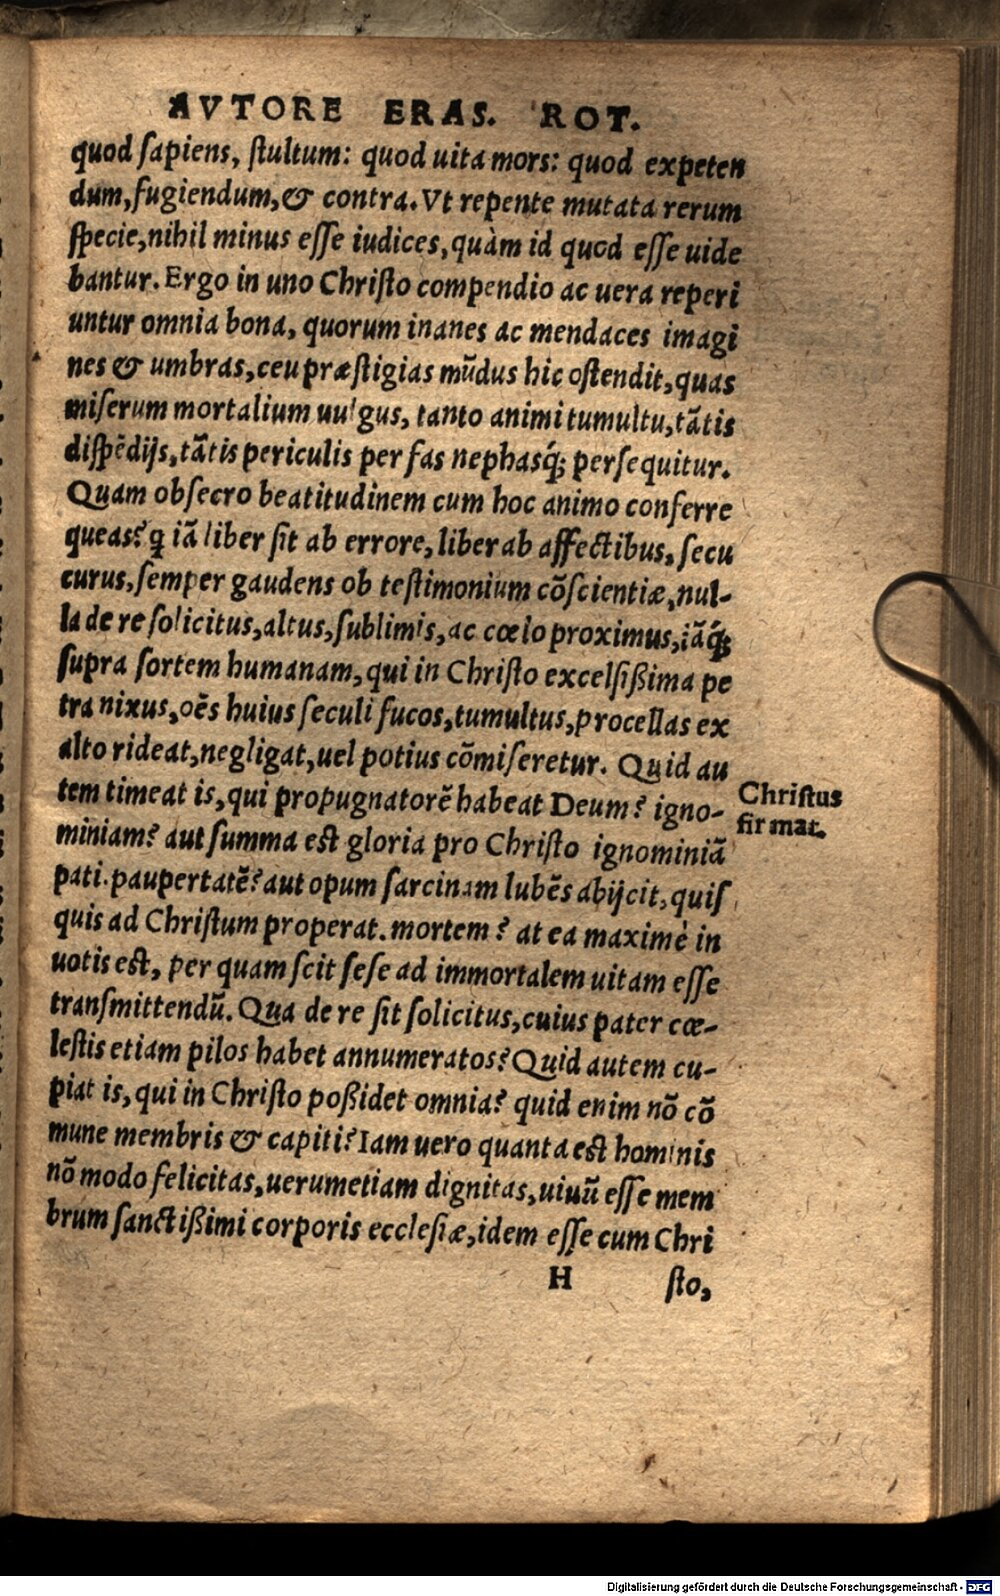 AVTORE ERAS. ROT.
quod sapiens, stultum: quod uita mors: quod expeten
dum, fugiendum, & contra. Vt repente mutata rerum
specie, nihil minus esse iudices, quàm id quod esse uide
bantur. Ergo in uno Christo compendio ac uera reperi
untur omnia bona, quorum inanes ac mendaces imagi
nes & umbras, ceu præstigias mūdus hic ostendit, quas
miserum mortalium uulgus, tanto animi tumultu, tātis
dispēdijs, tātis periculis per fas nephasq́; persequitur.
Quam obsecro beatitudinem cum hoc animo conferre
queas? ꝗ iā liber sit ab errore, liber ab affectibus, secu
curus, semper gaudens ob testimonium cōscientiæ, nul-
la de re solicitus, altus, sublimis, ac cœlo proximus, iāq́;
supra sortem humanam, qui in Christo excelsißima pe
tra nixus, oēs huius seculi fucos, tumultus, procellas ex
alto rideat, negligat, uel potius cōmiseretur. Quid au
tem timeat is, qui propugnatorē habeat Deum? igno-
miniam? aut summa est gloria pro Christo ignominiā
pati. paupertatē? aut opum sarcinam lubēs abijcit, quis
quis ad Christum properat. mortem? at ea maximè in
uotis est, per quam scit sese ad immortalem uitam esse
transmittendū. Qua de re sit solicitus, cuius pater cœ-
lestis etiam pilos habet annumeratos? Quid autem cu-
piat is, qui in Christo poßidet omnia? quid enim nō cō
mune membris & capiti? Iam uero quanta est hominis
nō modo felicitas, uerumetiam dignitas, uiuū esse mem
brum sanctißimi corporis ecclesiæ, idem esse cum Chri
H sto,
Christus
firmat.
Digitalisierung gefördert durch die Deutsche Forschungsgemeinschaft - DFG